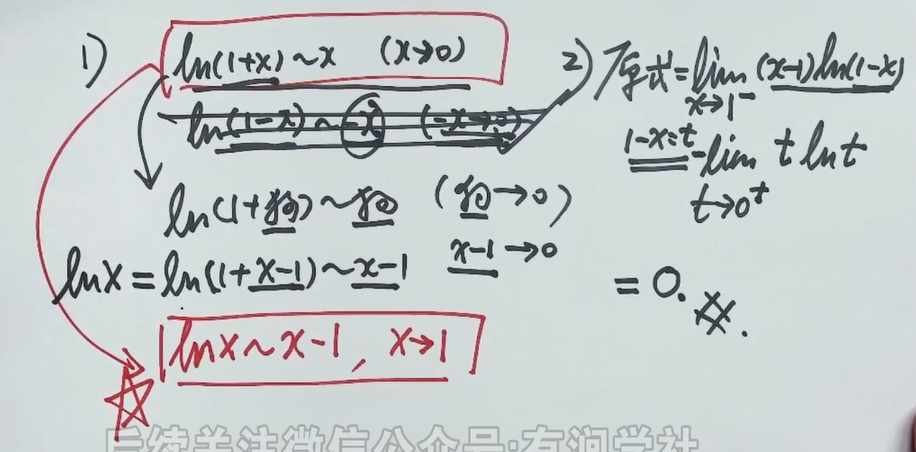 1) ln(1+x)~x (x→0)
ln(1-x)~-x (-x→0)
ln(1+狗)~狗 (狗→0)
lnx=ln(1+x-1)~x-1 x-1→0
lnx~x-1, x→1
2) 原式=lim (x-1)ln(1-x)
x→1⁻
1-x=t -lim t lnt
t→0⁺
=0. #.
后续关注微信公众号:有洵学社